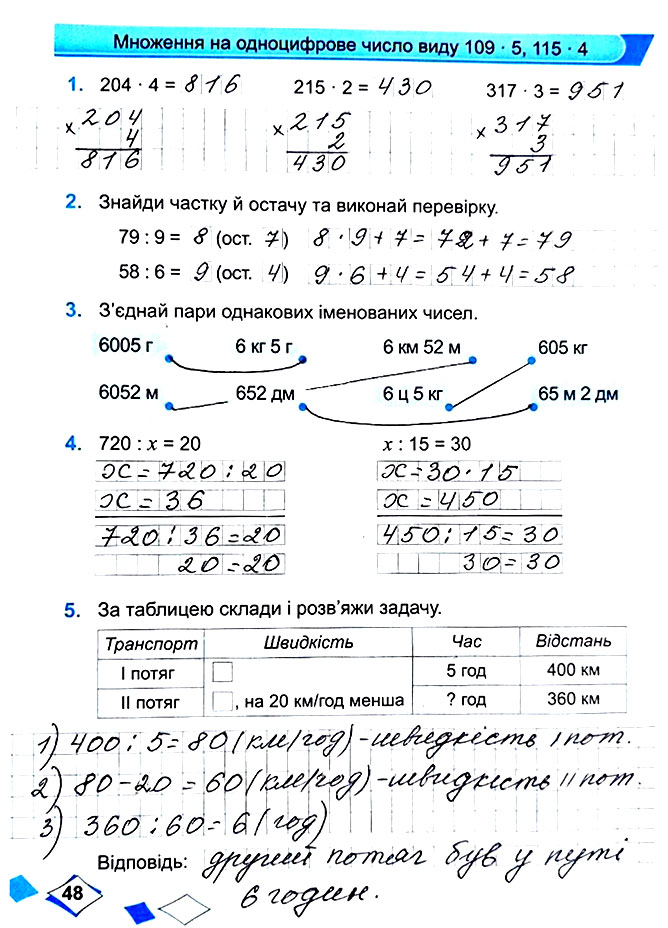 Множення на одноцифрове число виду 109 · 5, 115 · 4
1. 204 · 4 = 816 215 · 2 = 430 317 · 3 = 951
× 204 × 215 × 317
4 2 3
816 430 951
2. Знайди частку й остачу та виконай перевірку.
79 : 9 = 8 (ост. 7) 8 · 9 + 7 = 72 + 7 = 79
58 : 6 = 9 (ост. 4) 9 · 6 + 4 = 54 + 4 = 58
3. З'єднай пари однакових іменованих чисел.
6005 г 6 кг 5 г 6 км 52 м 605 кг
6052 м 652 дм 6 ц 5 кг 65 м 2 дм
4. 720 : x = 20 x : 15 = 30
x = 720 : 20 x = 30 · 15
x = 36 x = 450
720 : 36 = 20 450 : 15 = 30
20 = 20 30 = 30
5. За таблицею склади і розв'яжи задачу.
Транспорт Швидкість Час Відстань
І потяг 5 год 400 км
ІІ потяг , на 20 км/год менша ? год 360 км
1) 400 : 5 = 80 (км/год) - швидкість I пот.
2) 80 - 20 = 60 (км/год) - швидкість II пот.
3) 360 : 60 = 6 (год)
Відповідь: другий потяг був у путі
6 годин.
48